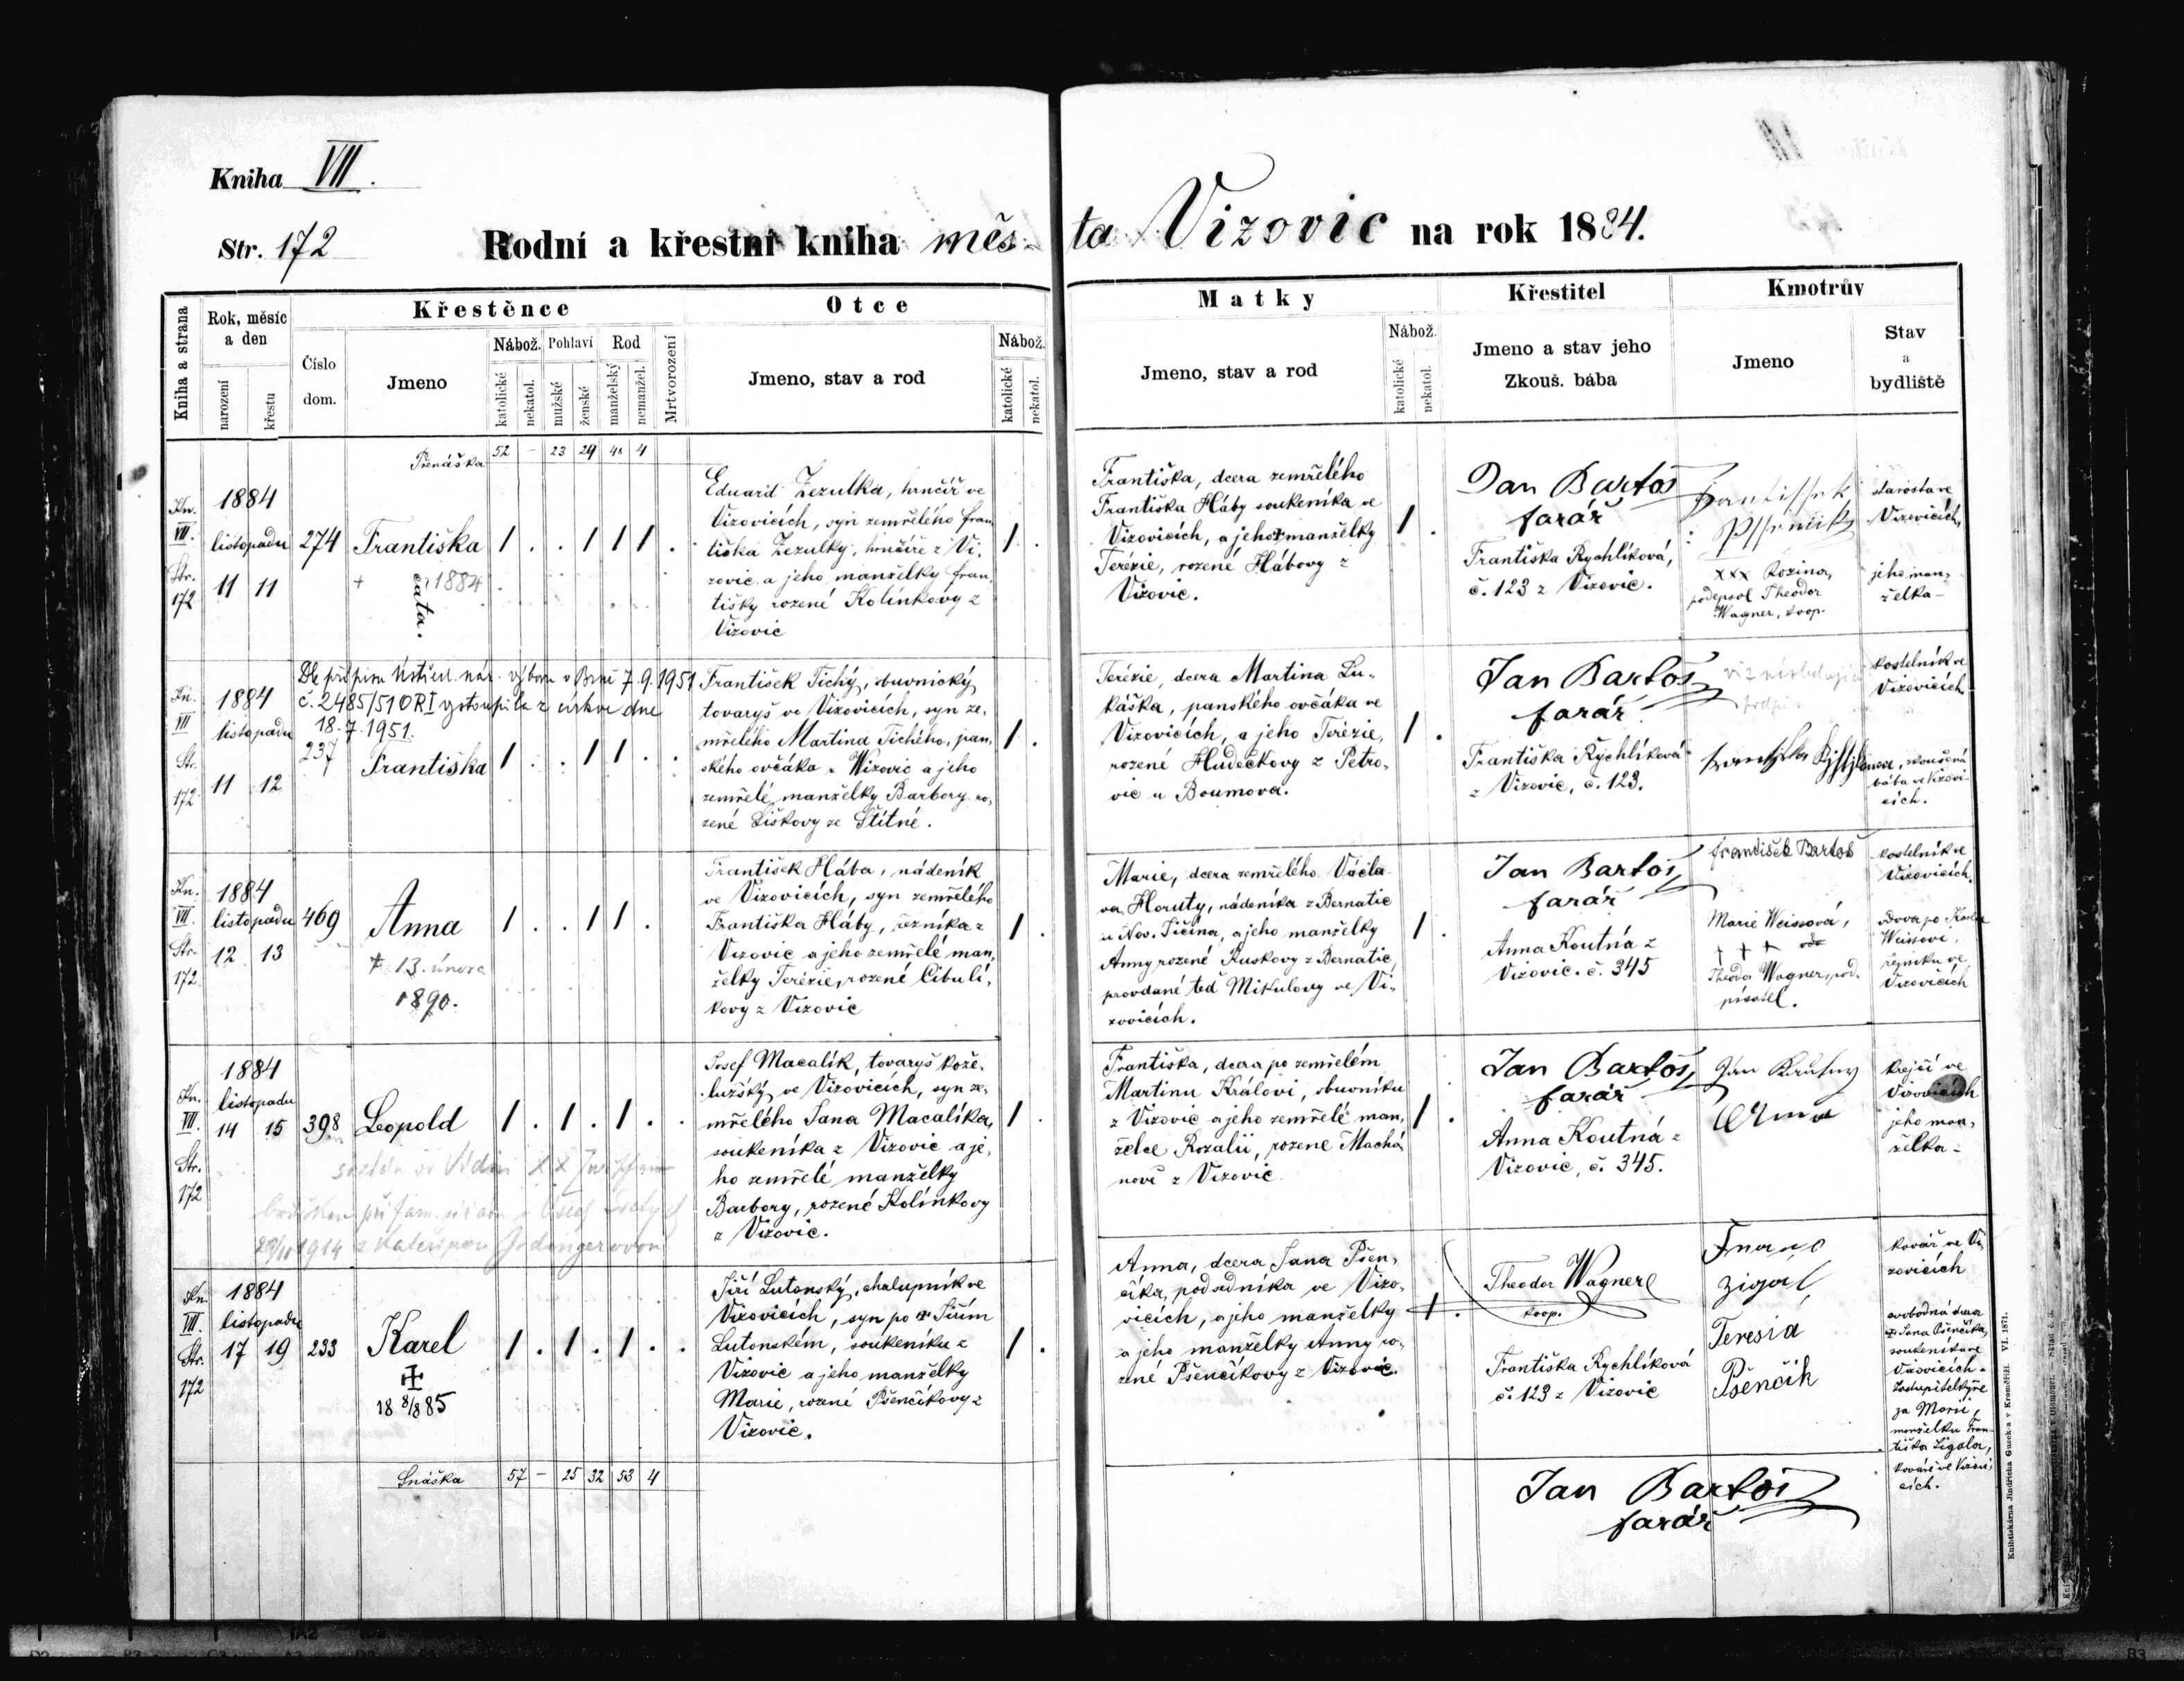 Kniha VII.
Str. 172
Rodní a křestní kniha měs-ta Vizovic na rok 1884.
Kniha a strana
Rok, měsíc
a den
narození
křestu
Křestěnce
Číslo
dom.
Jmeno
Nábož.
katolické
nekatol.
Pohlaví
mužské
ženské
Rod
manželský
nemanžel.
Mrtvorození
Otce
Jmeno, stav a rod
Nábož.
katolické
nekatol.
Matky
Jmeno, stav a rod
Nábož.
katolické
nekatol.
Křestitel
Jmeno a stav jeho
Zkouš. bába
Kmotrův
Jmeno
Stav
a
bydliště
Přenáška 52 - 23 29 48 4
Kn.
VII.
Str.
172
1884
listopadu
11 11
274
Františka
+ 1884
1 . . 1 1 1 .
Eduard Zezulka, hrnčíř ve
Vizovicích, syn zemřelého Fran
tiška Zezulky, hrnčíře z Vi-
zovic a jeho manželky Fran-
tišky rozené Kolínkovy z
Vizovic
1 .
Františka, dcera zemřelého
Františka Háby soukeníka ve
Vizovicích, a jeho manželky
Terézie, rozené Hábovy z
Vizovic.
1 .
Jan Bartoš
farář
Františka Rychlíková,
č. 123 z Vizovic.
xxx Rozina,
podepsal Theodor
Wagner, koop.
starosta ve
Vizovicích,
jeho man-
želka-
Kn.
VII
Str.
172
1884
listopadu
11 12
Dle přípisu Ústřed. nár. výboru v Brně 7.9.1951
č. 2485/51 ORI vystoupila z církve dne
18.7.1951.
237
Františka
1 . . 1 1 . .
František Tichý, obuvnický
tovaryš ve Vizovicích, syn ze-
mřelého Martina Tichého, pan-
ského ovčáka z Vizovic a jeho
zemřelé manželky Barbory ro-
zené Liškovy ze Štítné.
1 .
Terézie, dcera Martina Lu-
káška, panského ovčáka ve
Vizovicích, a jeho Terézie,
rozené Hudečkovy z Petro-
vic u Boumova.
1 .
Jan Bartoš
farář
Františka Rychlíková
z Vizovic, č. 123.
kostelník ve
Vizovicích
zkoušená
bába ve Vizovi-
cích.
Kn.
VII.
Str.
172
1884
listopadu
12 13
469
Anna
+ 13. února
1890.
1 . . 1 1 .
František Hába, nádeník
ve Vizovicích, syn zemřelého
Františka Háby, řezníka z
Vizovic a jeho zemřelé man-
želky Terézie, rozené Cibulí-
kovy z Vizovic
1 .
Marie, dcera zemřelého Václa-
va Horuty, nádeníka z Bernatic
u Nov. Jičína, a jeho manželky
Anny rozené Kuskovy z Bernatic
provdané teď Mikulovy ve Vi-
zovicích.
1 .
Jan Bartoš
farář
Anna Koutná z
Vizovic. č. 345
František Bartoš
Marie Weissová,
+ + +
Theodor Wagner, pod-
pisatel.
kostelník ve
Vizovicích.
vdova po
Weissovi,
řezníku ve
Vizovicích
Kn.
VII.
Str.
172
1884
listopadu
14 15
398
Leopold
1 . 1 . 1 . .
Josef Macalík, tovaryš kože-
lužský ve Vizovicích, syn ze-
mřelého Jana Macalíka,
soukeníka z Vizovic a je-
ho zemřelé manželky
Barbory, rozené Kolínkovy
z Vizovic.
1 .
Františka, dcera po zemřelém
Martinu Královi, obuvníku
z Vizovic a jeho zemřelé man-
želce Rozalii, rozene Machá-
nové z Vizovic
1 .
Jan Bartoš,
farář
Anna Koutná z
Vizovic, č. 345.
krejčí ve
Vizovicích
jeho man-
želka-
Kn.
VII.
Str.
172
1884
listopadu
17 19
233
Karel
18 8/8 85
1 . 1 . 1 . .
Jiří Lutonský, chalupník ve
Vizovicích, syn po Jiřím
Lutonském, soukeníku z
Vizovic a jeho manželky
Marie, rozené Pšenčíkovy z
Vizovic.
1 .
Anna, dcera Jana Pšen-
číka, podsedníka ve Vizo-
vicích, a jeho manželky
a jeho manželky Anny ro-
zené Pšenčíkovy z Vizovic.
1 .
Theodor Wagner
koop.
Františka Rychlíková
č. 123 z Vizovic
Zigal
Teresia
Pšenčik
kovář ve Vi-
zovicích
svobodná dcera
Jana Pšenčíka,
soukeníka ve
Vizovicích-
Zastupitelkyně
za Marii,
manželku Fran-
tiška Zigala,
kováře ve Vizovi-
cích.
Snáška 57 - 25 32 53 4
Jan Bartoš
farář
Knihtiskárna Jindřicha Guseka v Kroměříži. VI. 1871.